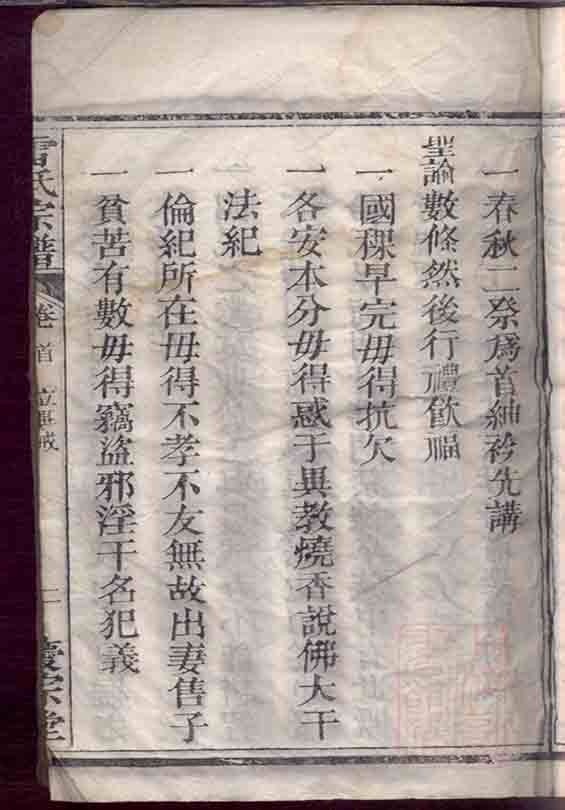 一春秋二祭爲首紳衿先講
聖諭數條然後行禮飲福
一國稞早完毋得抗欠
一各安本分毋得惑于異教燒香說佛大干
法紀
一倫紀所在毋得不孝不友無故出妻售子
一貧苦有數毋得竊盜邪淫干名犯義
氏宗譜
卷首
二
慶宗堂